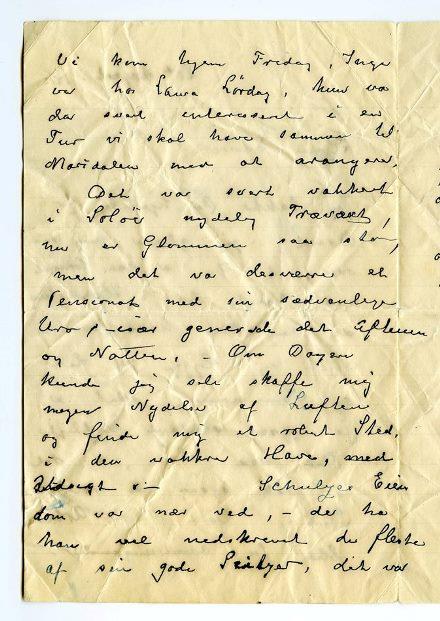 Vi kom hjem Fredag, Inga
var hos Laura Lördag, hun va
da svært interessert i en
Tur vi skal have sammen til
Maridalen med at arangere.
Det var svært vakkert
i Solör nydelig Trævæxt,
nu er Glommen saa stor,
men det var desværre et
Pensionat med sin sædvanlige
Uro, – især generede det Aftenen
og Natten. – Om Dagen
kunde jeg selv skaffe mig
megen Nydelse af Luften
og finde mig et roligt Sted.
i den vakkre Have, med
Udsigt – Schulzes Eien
dom var nær ved, – der ha
han vel nedskrevet de fleste
af sine gode, det var